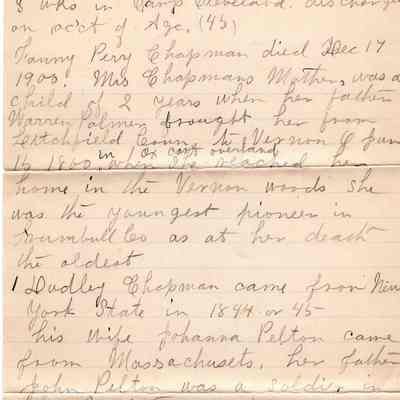 & who in Camp Cleveland. discharged
on acc't of Age. (45)
Fanny Perry Chapman died Dec 17
1900. Mrs Chapmans Mother, was a
child of 2 years when her father
Warren Palmer brought her from
Litchfield Conn. to Vernon O June
16 1800, in Ox cart overland
when she reached her
home in the Vernon woods she
was the youngest pioneer in
Trumbull Co as at her death
the oldest
1 Dudley Chapman came from New
York State in 1844 or 45
his wife Johanna Pelton came
from Massachusets, her father
John Pelton was a soldier in